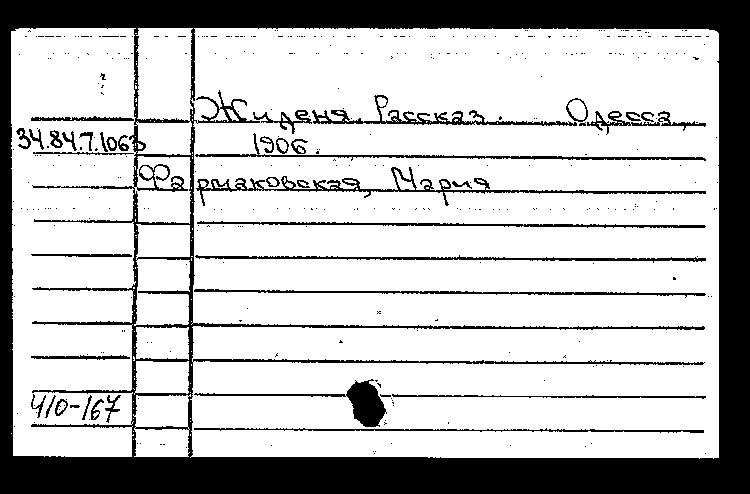 Жиденя. Рассказ. Одесса,
34.84.7.1063 1906.
Фармаковская, Мария
Ч10-167